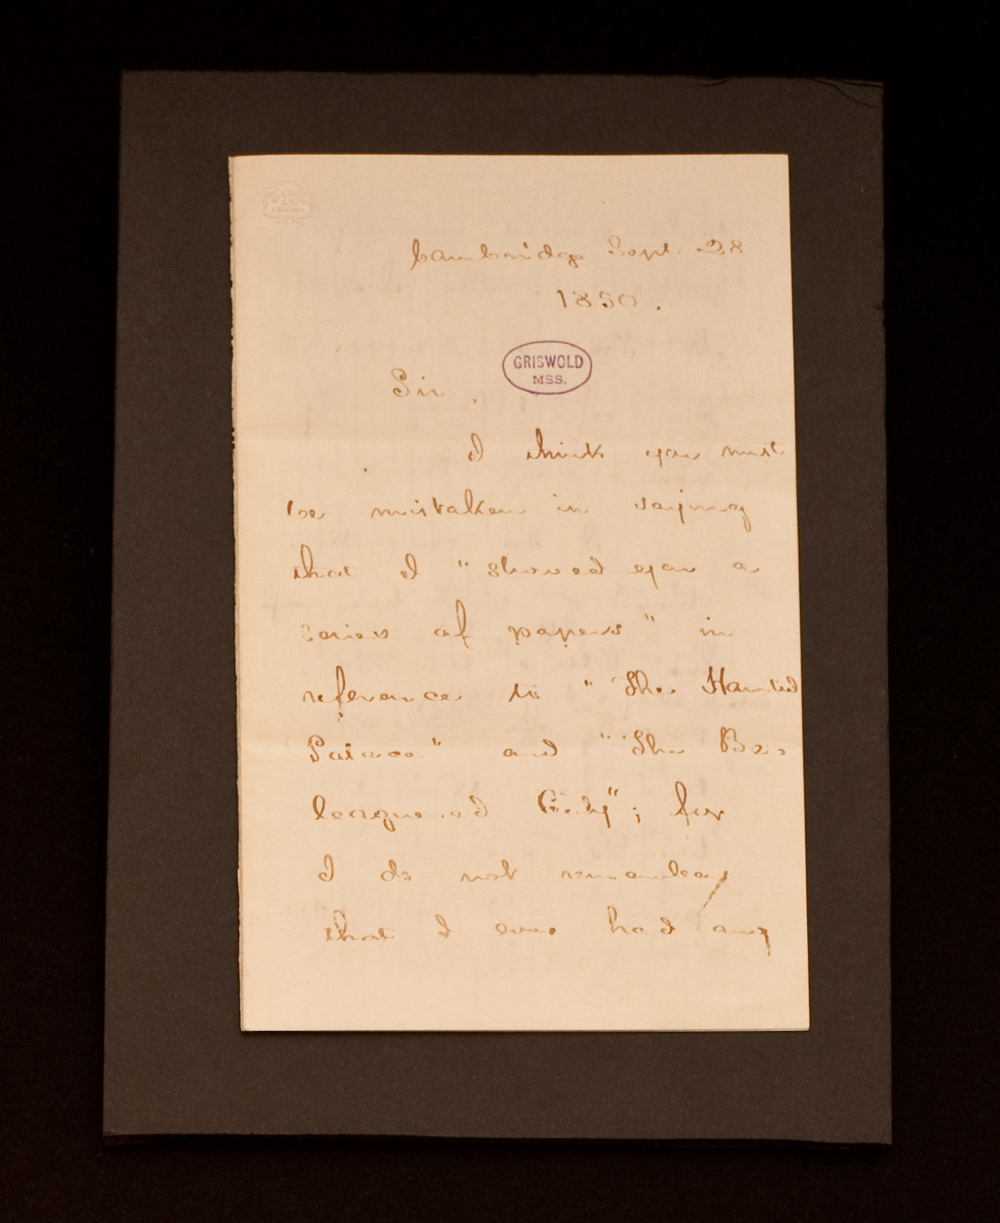 Cambridge Sept. 28
1850.
GRISWOLD
MSS.
Sir,
I think you must
be mistaken in saying
that I "showed you a
series of papers" in
reference to "The Haunted
Palace" and "The Be=
leaguered City"; for
I do not remember
that I ever had any